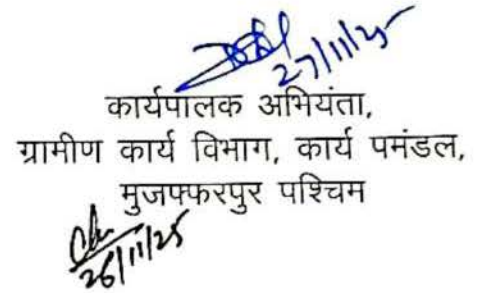 27/11/25
कार्यपालक अभियंता,
ग्रामीण कार्य विभाग, कार्य पमंडल,
मुजफ्फरपुर पश्चिम
26/11/25